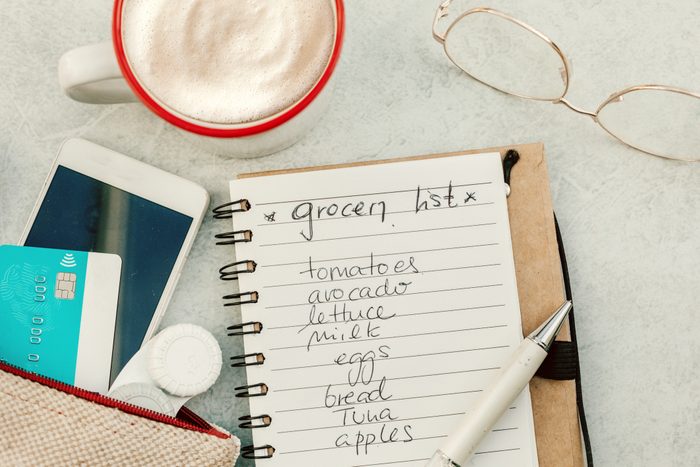 * grocery list *
tomatoes
avocado
lettuce
milk
eggs
bread
Tuna
apples